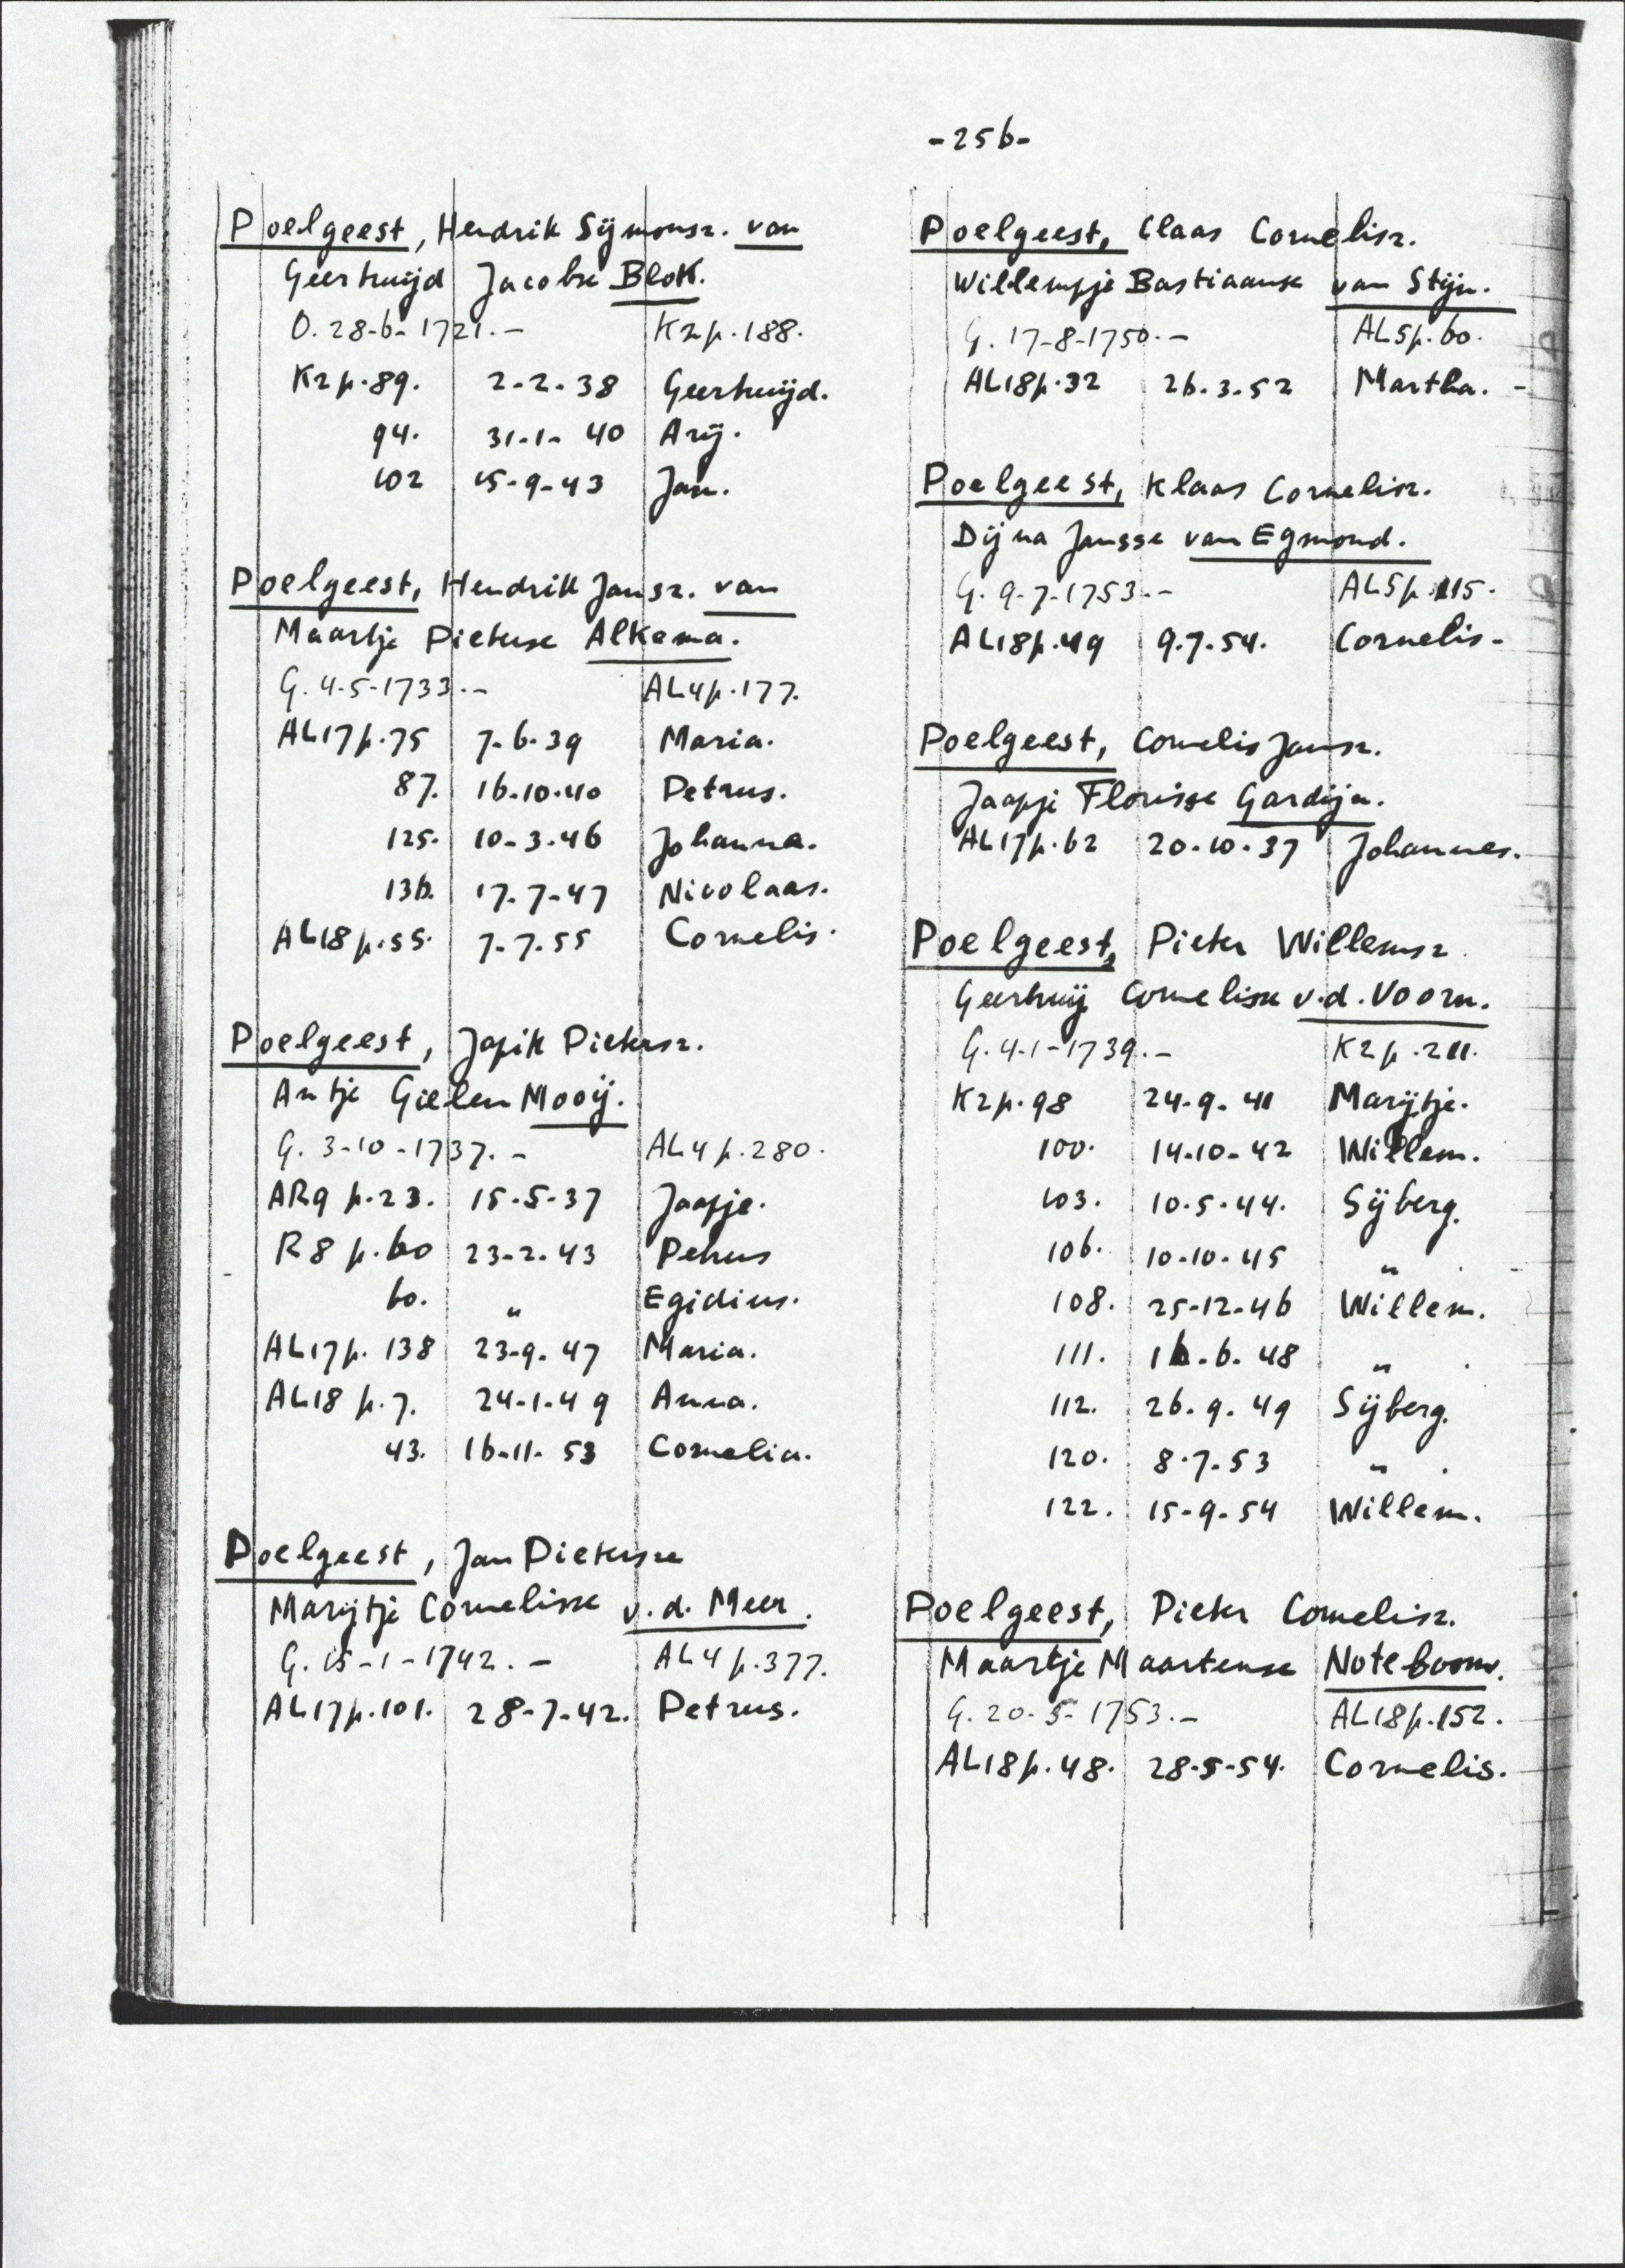 -256-
Poelgeest, Hendrik Sijmonsz. van
Geertruijd Jacobse Blok.
O. 28-6-1721.- K2p.188.
K2p.89. 2-2-38 Geertruijd.
94. 31-1-40 Arij.
102 15-9-43 Jan.
Poelgeest, Hendrik Jansz. van
Maartje Pieterse Alkema.
G. 4-5-1733.- AL4p.177.
AL17p.75 7-6-39 Maria.
87. 16-10-40 Petrus.
125. 10-3-46 Johanna.
136. 17-7-47 Nicolaas.
AL18p.55. 7-7-55 Cornelis.
Poelgeest, Japik Pietersz.
Antje Gielen Mooij.
G. 3-10-1737.- AL4p.280.
AR9 p.23. 15-5-37 Jaapje.
R8 p.60 23-2-43 Petrus
60. " Egidius.
AL17p.138 23-9-47 Maria.
AL18 p.7. 24-1-49 Anna.
43. 16-11-53 Cornelia.
Poelgeest, Jan Pietersze
Marijtje Cornelisse v.d. Meer.
G. 15-1-1742.- AL4p.377.
AL17p.101. 28-7-42. Petrus.
Poelgeest, Claas Cornelisz.
Willempje Bastiaanse van Stijn.
G. 17-8-1750.- AL5p.60.
AL18p.32 26.3.52 Martha.-
Poelgeest, Klaas Cornelisz.
Dijna Jansse van Egmond.
G. 9-7-1753.- AL5p.115.
AL18p.49 9.7.54. Cornelis-
Poelgeest, Cornelis Jansz.
Jaapje Florisse Gardijn.
AL17p.62 20-10-37 Johannes.
Poelgeest, Pieter Willemsz.
Geertruij Cornelisse v.d. Voorn.
G. 4-1-1739.- K2p.211.
K2p.98 24-9-41 Marijtje.
100. 14-10-42 Willem.
103. 10-5-44. Sijberg.
106. 10-10-45 " .
108. 25-12-46 Willem.
111. 16-6-48 " .
112. 26.9.49 Sijberg.
120. 8.7.53 " .
122. 15-9-54 Willem.
Poelgeest, Pieter Cornelisz.
Maartje Maartense Noteboom.
G. 20-5-1753.- AL18p.152.
AL18p.48. 28-5-54. Cornelis.